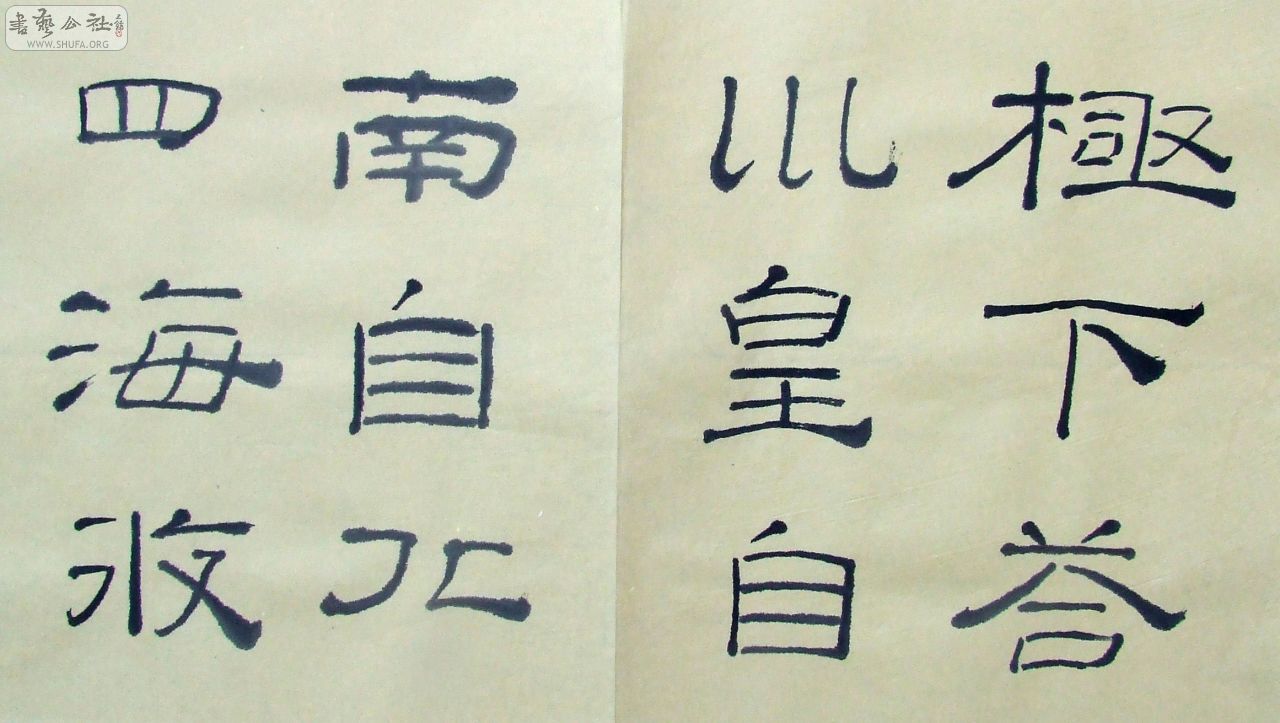 極下荅
川皇自
南自北
四海攸
書藝公社
WWW.SHUFA.ORG